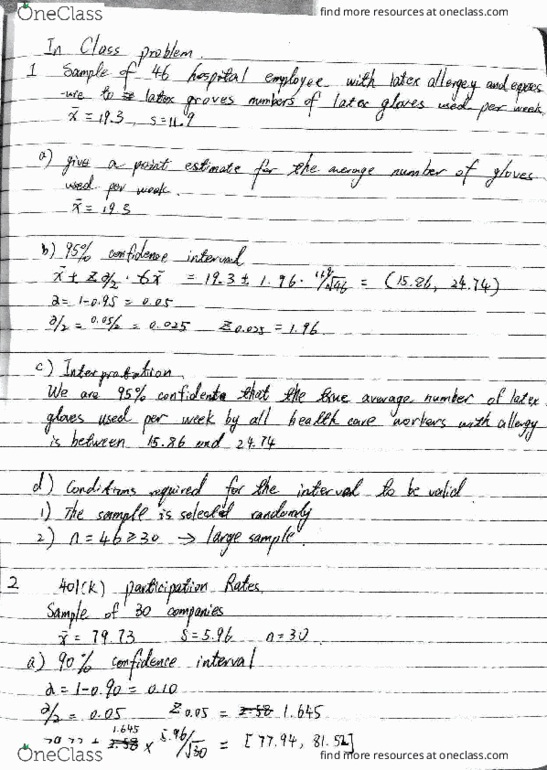 OneClass
find more resources at oneclass.com
In Class problem.
1 Sample of 46 hospital employee with latex allergey and
-ure to latex groves numbers of latex gloves used per week
x̄ = 19.3, s = 11.9
a) give a point estimate for the average number of gloves
used per week.
x̄ = 19.3
b) 95% confidence interval
x̄ ± Z ∂/2 · 6x̄ = 19.3 ± 1.96 · 11.9/√46 = (15.86, 24.74)
∂ = 1-0.95 = 0.05
∂/2 = 0.05/2 = 0.025 Z 0.025 = 1.96
c)
We are 95% confidente that the true average number of latex
gloves used per week by all health care workers with allergy
is between 15.86 and 24.74
d) Conditions required for the interval to be valid
1) The sample is selected randomly
2) n = 46 ≥ 30 → large sample.
2 401(k) participation Rates.
Sample of 30 companies
x̄ = 79.73 S = 5.96 n = 30
a) 90% confidence interval
∂ = 1-0.90 = 0.10
∂/2 = 0.05 Z 0.05 = 2.58 1.645
1.645
± 2.58 × 5.96/√30 = [77.94, 81.52]
OneClass
find more resources at oneclass.com